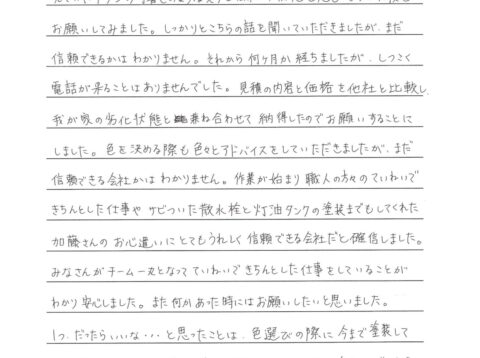 お願いしてみました。しっかりとこちらの話を聞いていただきましたが、まだ
信頼できるかは わかりません。それから 何ヶ月か 経ちましたが、しつこく
電話が来ることはありませんでした。見積の内容と価格を他社と比較し、
我が家の劣化状態と兼ね合わせて 納得したのでお願いすることに
しました。色を決める際も色々とアドバイスをしていただきましたが、まだ
信頼できる会社かは わかりません。作業が始まり 職人の方々のていねいで
きちんとした仕事や サビついた散水栓と灯油タンクの塗装までもしてくれた
加藤さんの お心遣いにとてもうれしく 信頼できる会社だと確信しました。
みなさんがチーム一丸となって ていねいで きちんとした仕事をしていることが
わかり 安心しました。また何かあった時にはお願いしたいと思いました。
1つ、だったらいいな・・・と思ったことは、色選びの際に 今まで塗装して